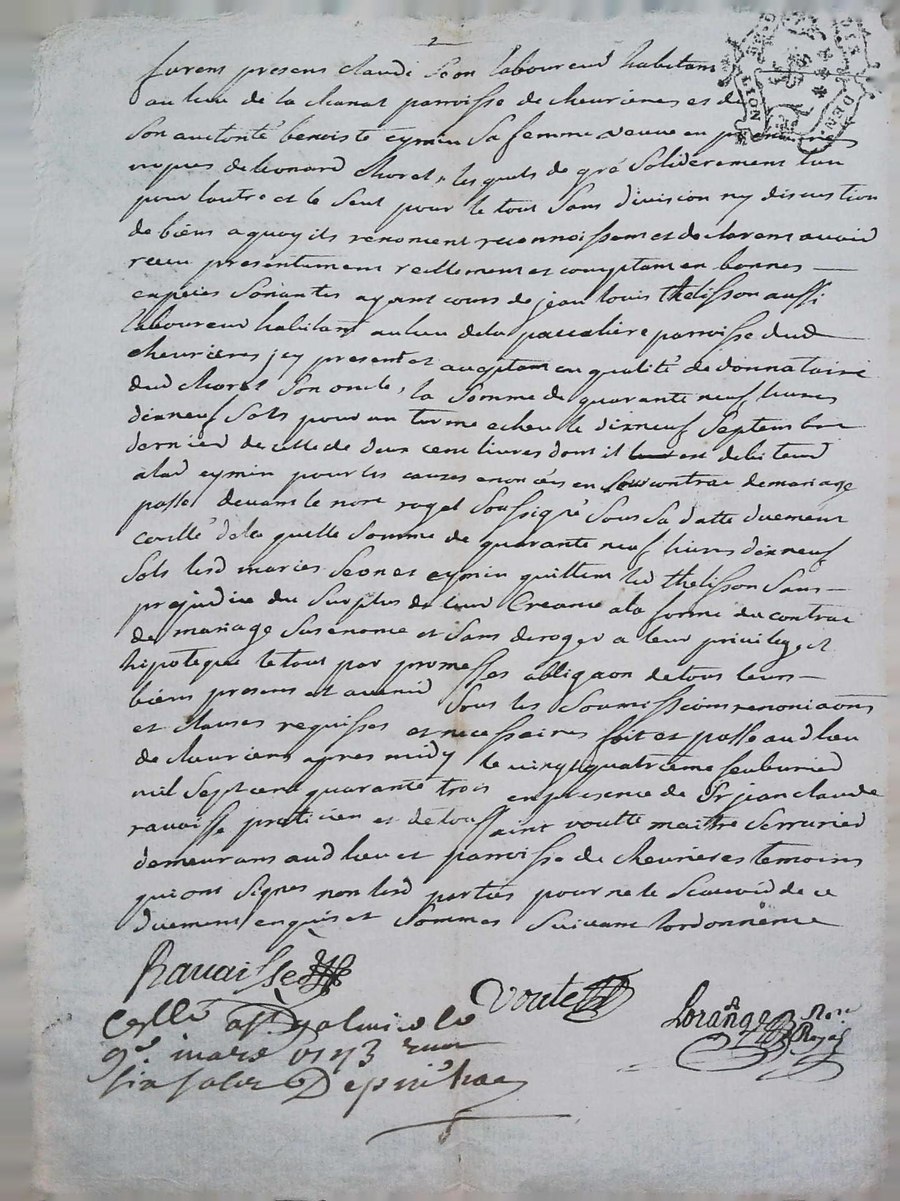 2
furent presens claude Seon laboureur habitant
au lieu de la chanat parroisse de cheurieres et de
Son auctorité benoiste eymin Sa femme veuve en
nopces de leonard choret, lesquels de gré Solidairement l'un
pour l'autre et le Seul pour le tout Sans division ny discution
de biens a quoy ils renoncent reconnoissent et declarent auoir
receu presentement reellement et comptant en bonnes
especes Sonantes ayant cours de jean louis thelisson aussi
laboureur habitant au lieu de la pascaliere parroisse dud
cheurieres jcy present et acceptant en qualité de donnataire
dud choret Son oncle, la Somme de quarante neuf liures
dixneuf Sols pour un terme echeu le dixneuf Septembre
dernier de celle de deux cent liures dont il est debiteur
a lad eymin pour les causes enoncées en Son contrac de mariage
passé devant le nore royal Soussigné Sous Sa datte duement
conllé de la quelle Somme de quarante neuf liures dixneuf
Sols lesd maries Seon et eymin quittent led thelisson Sans
prejudice du Surplus de leur Creance a la forme du contrac
de mariage Susenoncé et Sans deroger a leur privilege et
hipoteque le tout par promesses obligaon de tous leurs
biens presens et auenir Sous les Soumissions renonciaons
et clauses requisses et necessaires fait et passé aud lieu
de cheurieres apres midy le vingtquatrieme feuburier
mil Sept cent quarante trois en presence de Sr jean claude
rauaisse praticien et de toussaint voulte maitre Serrurier
demeurans aud lieu et parroisse de cheurieres temoins
qui ont Signes non lesd parties pour ne le Scauoir de ce
duement enquis et Sommes Suivant lordonnence
Rauaisse
Voute
Lorange Nore
Royal
Conllé a St galmier le
9e mars 1743 recu
Six Sols